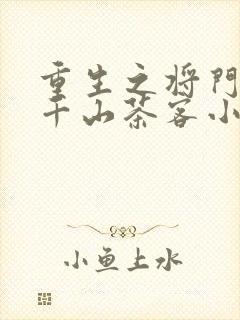 重生之将门
千山茶客小
小鱼上水